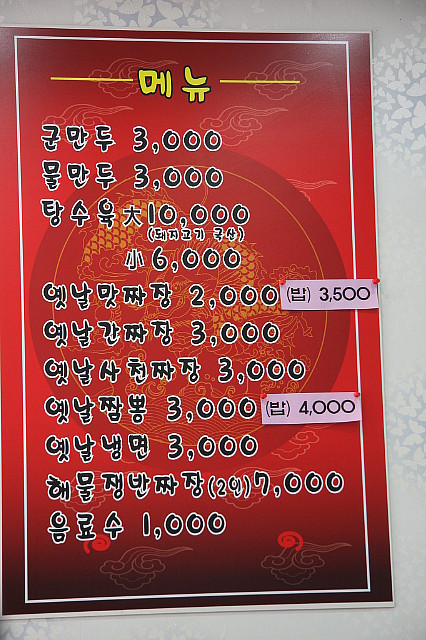 메뉴
군만두 3,000
물만두 3,000
탕수육 大 10,000
(돼지고기 국산)
小 6,000
옛날맛짜장 2,000 (밥) 3,500
옛날간짜장 3,000
옛날사천짜장 3,000
옛날짬뽕 3,000 (밥) 4,000
옛날냉면 3,000
해물쟁반짜장(2인)7,000
음료수 1,000